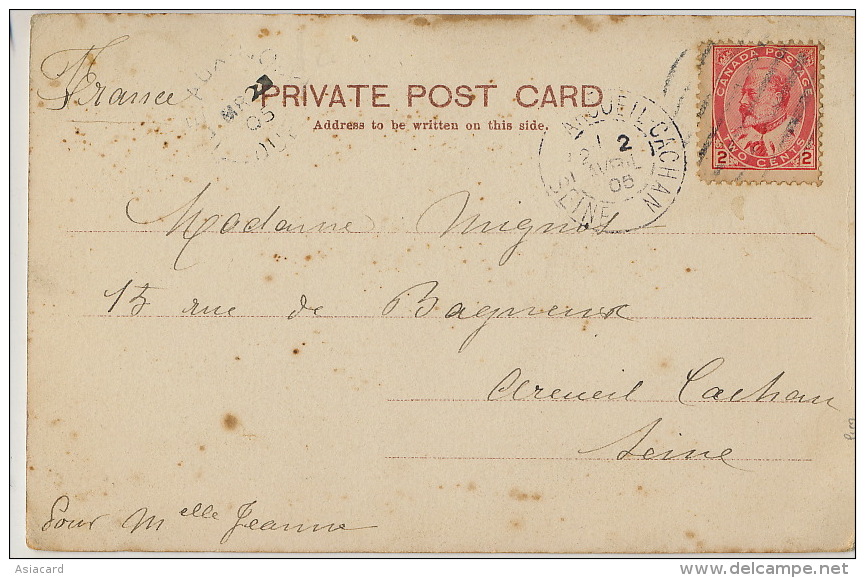 France
PRIVATE POST CARD
Address to be written on this side.
MR 2
05
ARCUEIL-CACHAN
1 2
AVRIL
05
SEINE
CANADA POSTAGE
2 2
TWO CENTS
Madame Mignot
15 rue de Bagneux
Arcueil Cachan
Seine
Pour Melle Jeanne
Asiacard
delcampe.net